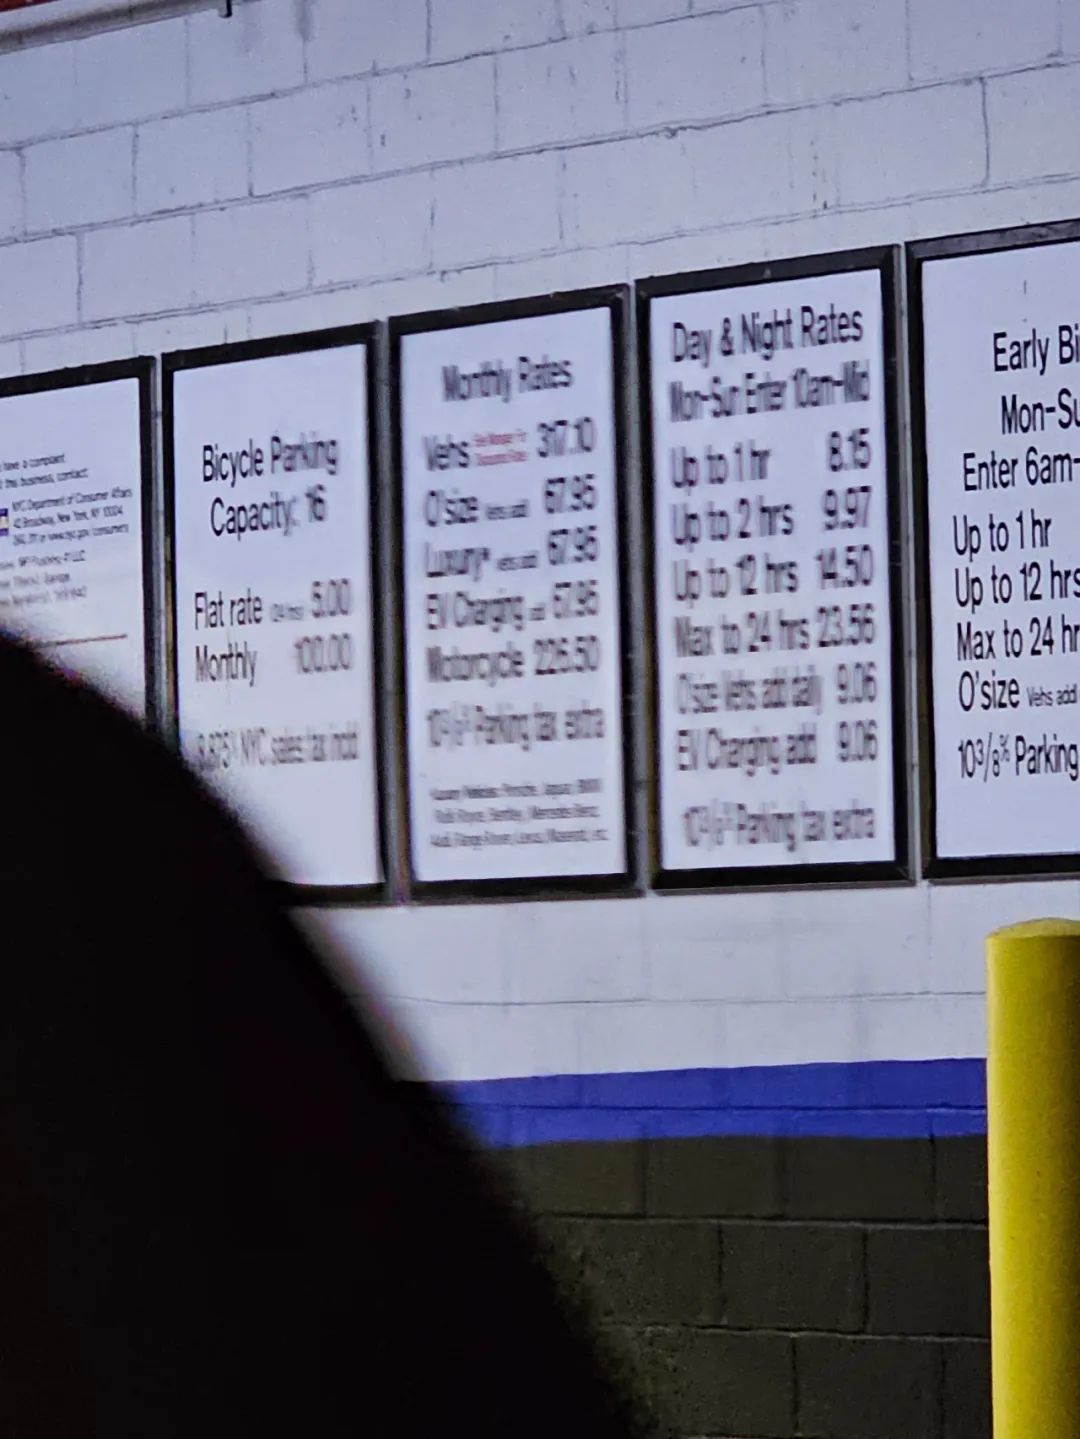 have a complaint
this business, contact:
NYC Department of Consumer Affairs
42 Broadway, New York, NY 10004
Bicycle Parking
Capacity: 16
Flat rate (24 hrs) 5.00
Monthly 100.00
8.875% NYC sales tax incld
Monthly Rates
Vehs 317.10
O'size Vehs add 67.95
Luxury* vehs add 67.95
EV Charging add 67.95
Motorcycle 226.50
10 3/8% Parking tax extra
Porsche, Jaguar, BMW
Rolls Royce, Bentley, Mercedes Benz,
Audi, Range Rover, Lexus, Maserati, etc.
Day & Night Rates
Mon-Sun Enter 10am-Mid
Up to 1 hr 8.15
Up to 2 hrs 9.97
Up to 12 hrs 14.50
Max to 24 hrs 23.56
O'size Vehs add daily 9.06
EV Charging add 9.06
10 3/8% Parking tax extra
Early Bi
Mon-Su
Enter 6am-
Up to 1 hr
Up to 12 hrs
Max to 24 hr
O'size Vehs add
10 3/8% Parking